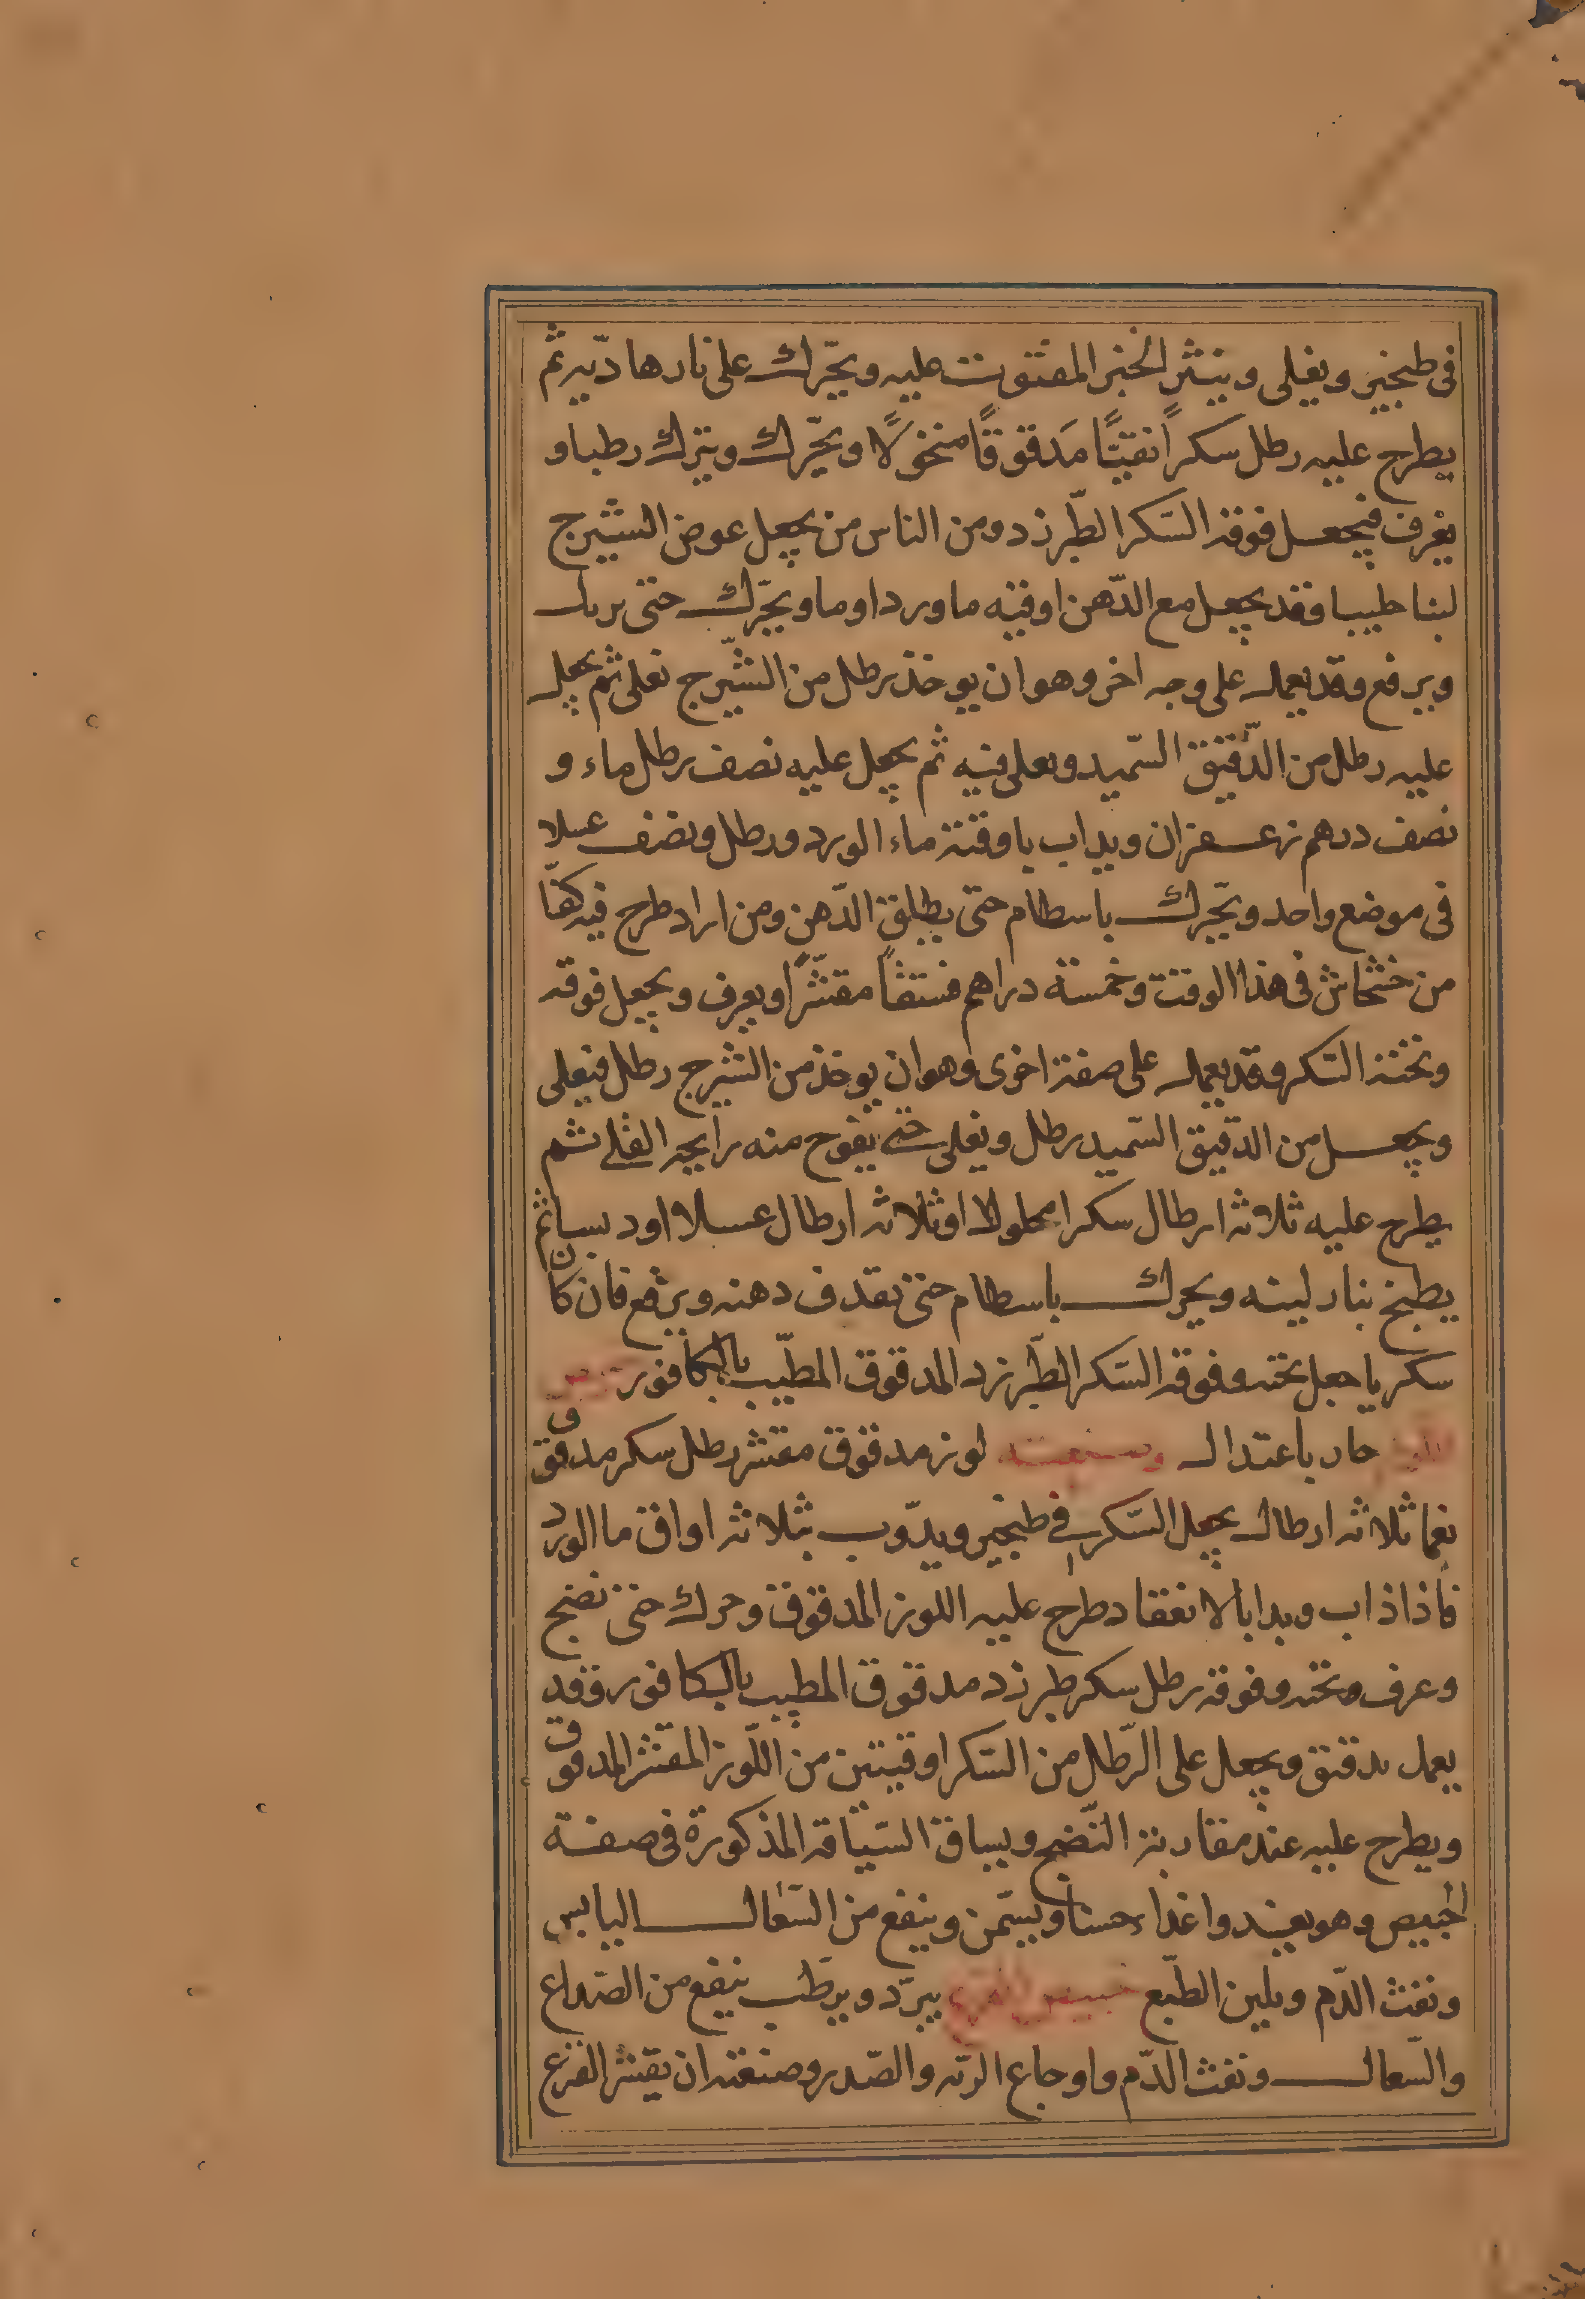 فى طنجير ويغلى وينثر الخبز المفتوت عليه ويحّرك على نار هاديه ثم
يطرح عليه رطل سكراً نقيّاً مَدقوقاً منخولًا ويحّرك ويترك رطبا و
يغرف فيجعل فوقه السّكر الطّبرزد ومن الناس من يجعل عوض الشيرج
لبنا حليبا وقد يجعل مع الدّهن اوقيه ماورد اوما ويحّرك حتى
ويرفع وقد يعمل على وجه اخر وهو ان يوخذ رطل من الشّيرج يغلى ثم يجعل
عليه رطل من الدّقيق السّميد ويعلى فيه ثم يجعل عليه نصف رطل ماء و
نصف درهم زعفران ويداب باوقية ماء الورد ورطل ونصف عسلا
فى موضع واحد ويحّرك باسطام حتى يطلق الدّهن ومن اراد طرح فيه كفّا
من خشخاش فى هذا الوقت وخمسة دراهم فستقاً مقشّرًا ويغرف ويجعل فوقه
وتحته السّكر وقد يعمل على صفة اخرى وهو ان يوخذ من الشيرج رطل فيغلى
ويجعل من الدّقيق السّميد رطل ويغلى حتى يفوح منه رايحه القلى ثم
يطرح عليه ثلاثه ارطال سكرا محلولا او ثلاثه ارطال عسلا او دبسا ثم
يطبخ بنار لينه ويحرك باسطام حتى يقذف دهنه ويرفع فان كان
سكريا جعل تحته وفوقه السّكر الطّبرزد المدقوق المطيّب بالكافور خبيص
اللوز حار باعتدال وصنعته لوز مدقوق مقشر رطل سكر مدقوق
نعما ثلاثه ارطال يجعل السّكر في طنجير ويدّوب بثلاثه اواق ما الورد
فاذا ذاب وبدا بالانعقاد طرح عليه اللوز المدقوق وحرك حتى نضج
وغرف وتحته وفوقه رطل سكر طبرزد مدقوق المطيب بالكافور وقد
يعمل بدقيق ويجعل على الرّطل من السّكر اوقيتين من اللّوز المقشر المدقوق
ويطرح عليه عند مقاربة النّضج ويساق السّياقه المذكورة فى صفة
الخبيص وهو يغذوا غذاء حسنا ويسّمن وينفع من السّعال اليابس
ونفث الدّم ويلين الطبّع خبيص القرع يبرّد ويرطّب ينفع من الصّداع
والسّعال ونفث الدّم واوجاع الريّه والصّدر وصنعته ان يقشر القرع